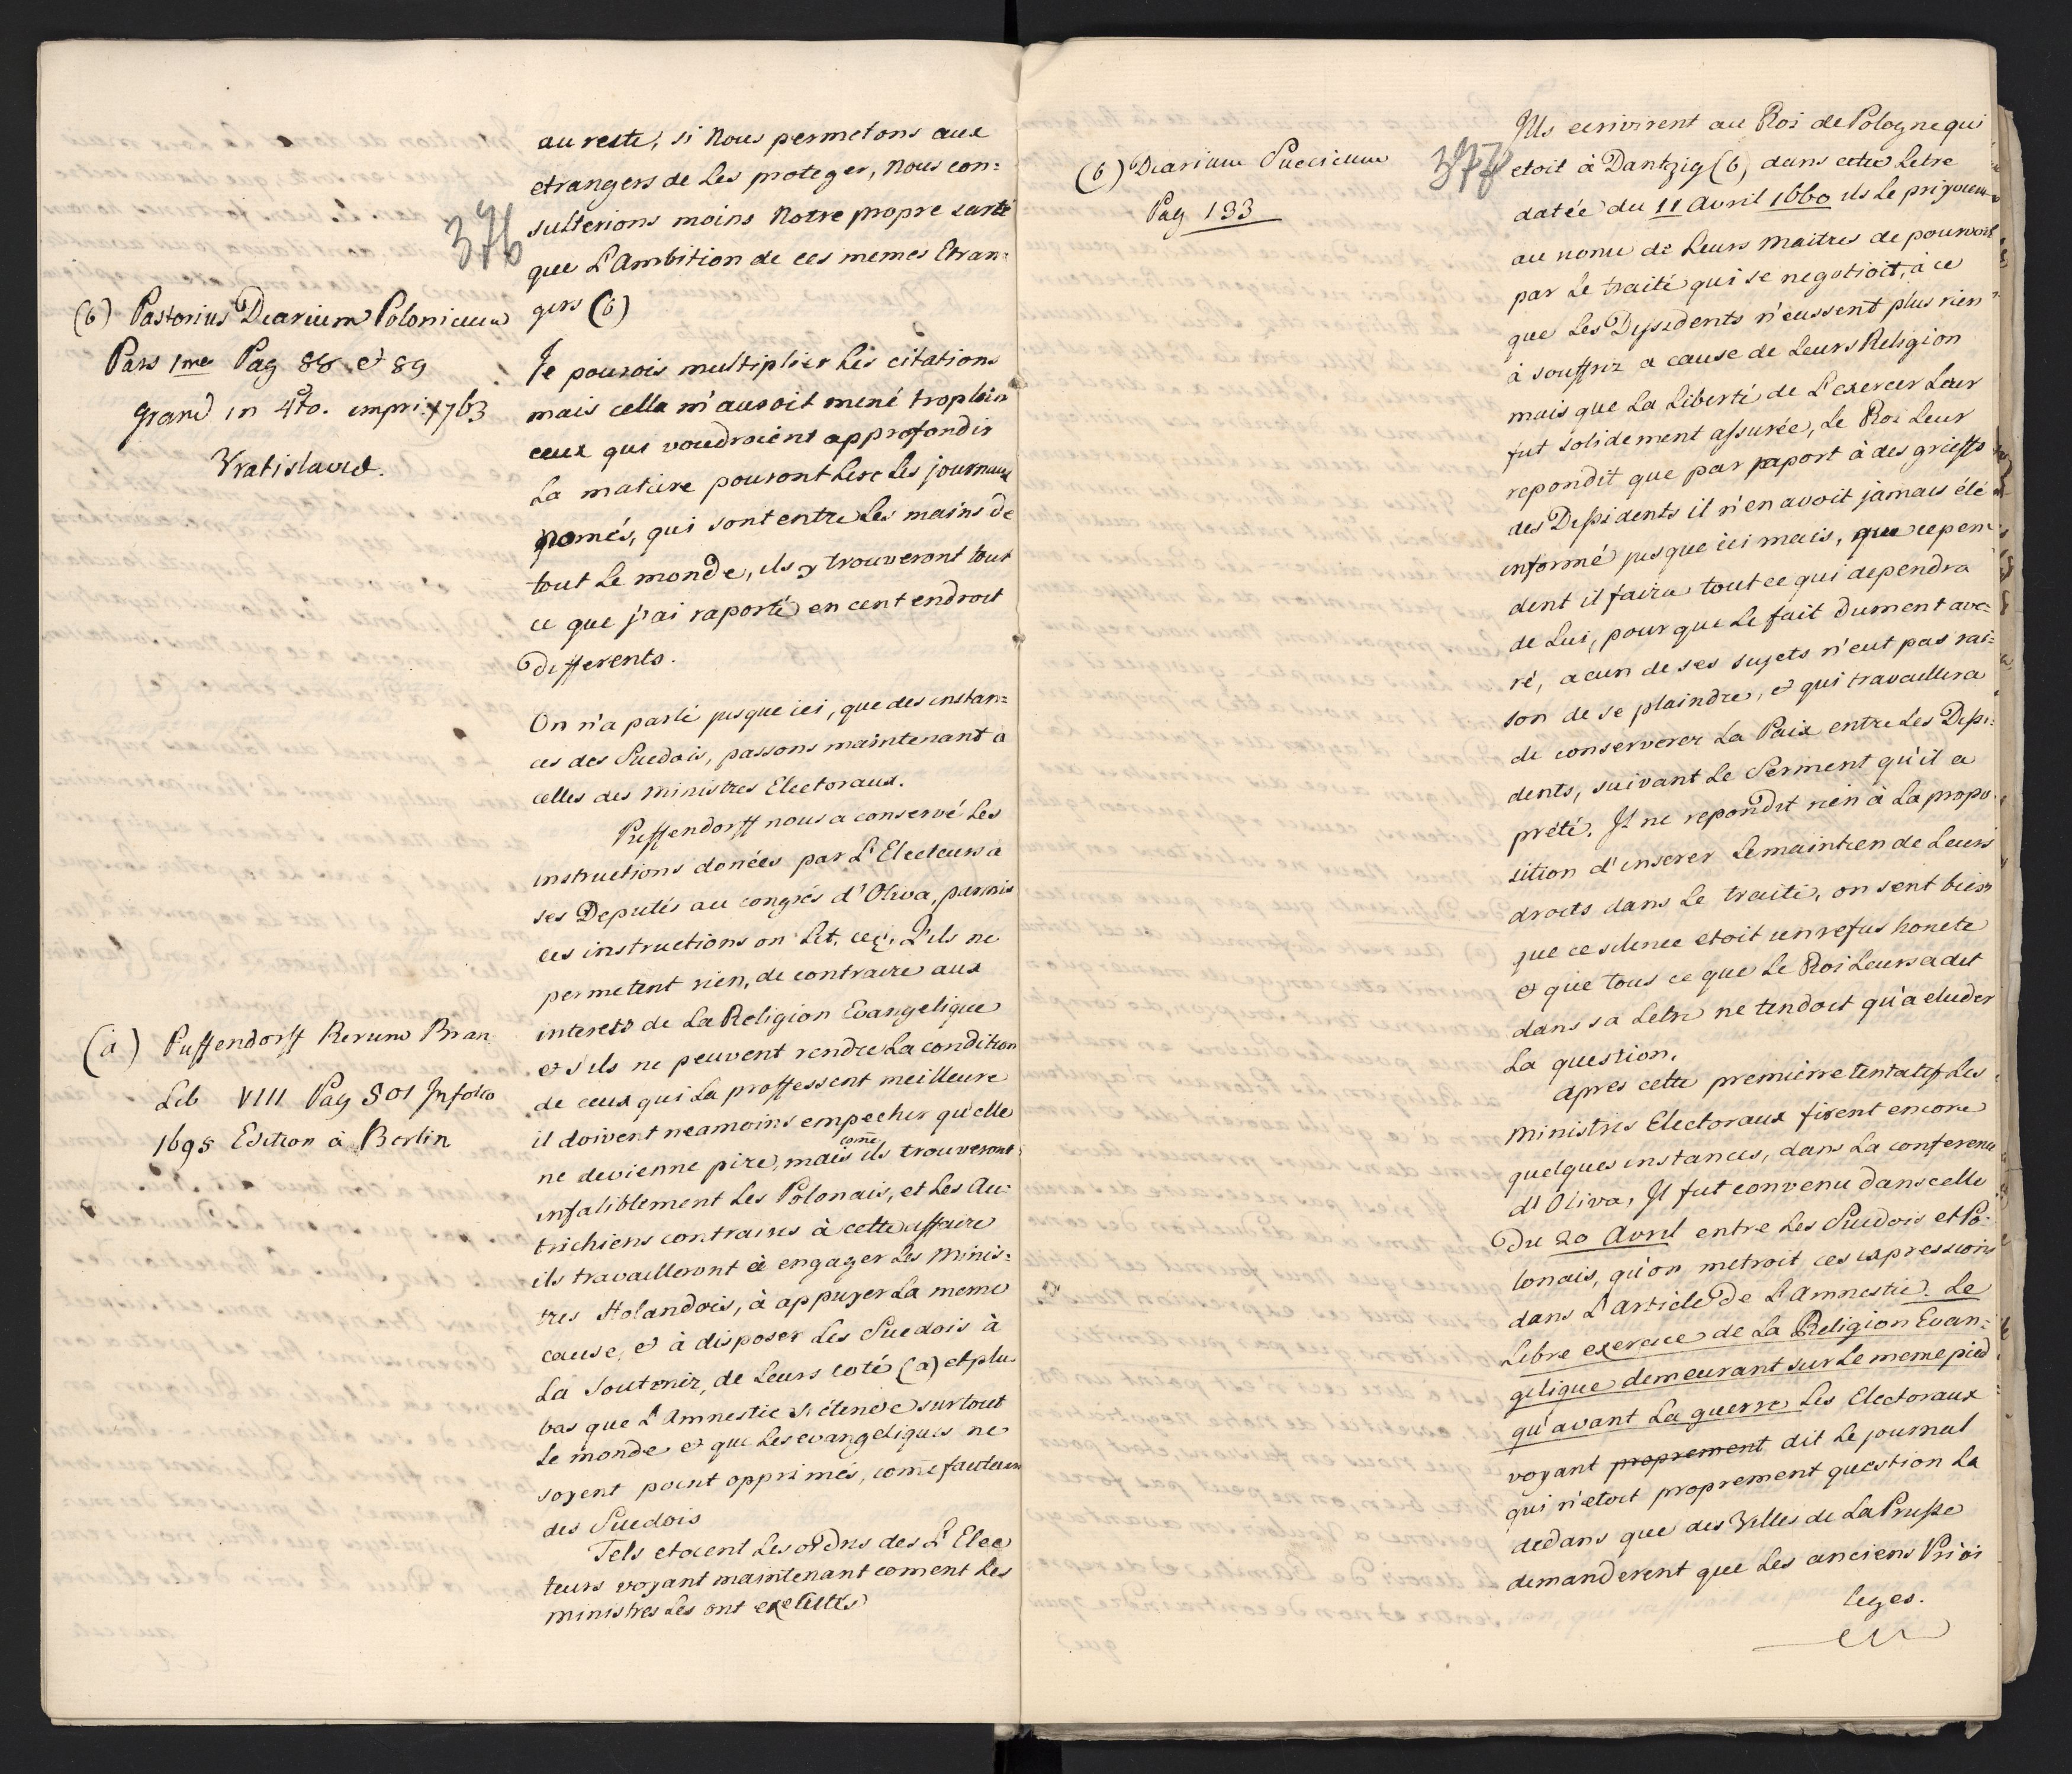 376
(b) Pastorius Diarium Polonicum
Pars 1me Pag 88 et 89
grand in 4to. impri: 1763
Vratislavie.
(a) Puffendorff Rerum Bran
Lib VIII Pag 501 In folio
1695 Edition à Berlin
au reste, si Nous permetons aux
etrangers de Les proteger, Nous con=
sulterions moins Notre propre sureté
que L'Ambition de ces memes Etran=
gers (b)
Je pourois multiplier Les citations
mais cella m'auroit mené trop loin
ceux qui voudroient approfondir
La matiere pouront Lire Les journaux
només, qui sont entre Les mains de
tout Le monde, ils y trouveront tout
ce que j'ai raporté en cent endroit
differents.
On n'a parlé jusque ici, que des instan=
ces des Suedois, passons maintenant a
celles des ministres Electoraux.
Puffendorff nous a conservé Les
instructions donées par L'Electeurs a
ses Deputés au congrés d'Oliva, parmis
ces instructions on Lit. ceçi. Qu'ils ne
permetent rien, de contraire aux
interets de La Religion Evangelique
et s'ils ne peuvent rendre La condition
de ceux qui La proffessent meilleure
il doivent neamoins empecher qu'elle
ne devienne pire, mais come ils trouveront
infaliblement Les Polonais, et Les Au=
trichiens contraires à cette affaire
ils travailleront à engager Les Minis=
tres Holandois, à appuyer La meme
cause, et à disposer Les Suedois à
La Soutenir, de Leurs coté (a) et plu
bas que L'Amnestie s'étende sur tout
Le monde et que Les evangeliques ne
soyent point opprimés, come fauteurs
des Suedois
Tels etoient Les ordres des L'Elec
teurs voyant maintenant coment Les
ministres Les ont exécutés
377
(b) Diarium Suecicum
Pag 133
Ils ecrivirent au Roi de Pologne qui
etoit à Dantzig (b) dans cette Letre
datée du 11 Avril 1660 ils Le prioient
au nome de Leurs Maitres de pourvoir
par Le traité qui se negotioit, à ce
que Les Dissidents n'eussent plus rien
à souffrir a cause de Leurs Religion
mais que La Liberté de L'exercer Leur
fut solidement assurée, Le Roi Leur
repondit que par raport à des grieffs
des Dissidents il n'en avoit jamais été
informé jusque ici mais, que cepen
dent il faira tout ce qui dependra
de Lui, pour que Le fait dument ave=
ré, acun de ses sujets n'eut pas rai=
son de se plaindre, et qui travaillera
de conserverer La Paix entre Les Dissi=
dents, suivant Le Serment qu'il a
prété. Il ne repondit rien à La propo
sition d'inserer Le maintien de Leurs
droits dans Le traité, on sent bien
que ce silence etoit un refus honete
et que tous ce que Le Roi Leurs a dit
dans sa Letre ne tendoit qu'a eluder
La question.
Apres cette premierre tentatif Les
Ministres Electoraux firent encore
quelques instances, dans La conference
d'Oliva, Il fut convenu dans celle
Du 20 Avril entre Les Suedois et Po=
lonais, qu'on metroit ces expressions
dans L'Article De L'Amnestie. Le
Libre exercice de La Religion Evan=
gelique demeurant sur Le meme pied
qu'avant La guerre Les Electoraux
voyant proprement dit Le journal
qui n'etoit proprement question La
dedans que des Villes de La Prusse
demanderent que Les anciens Privi
leges.